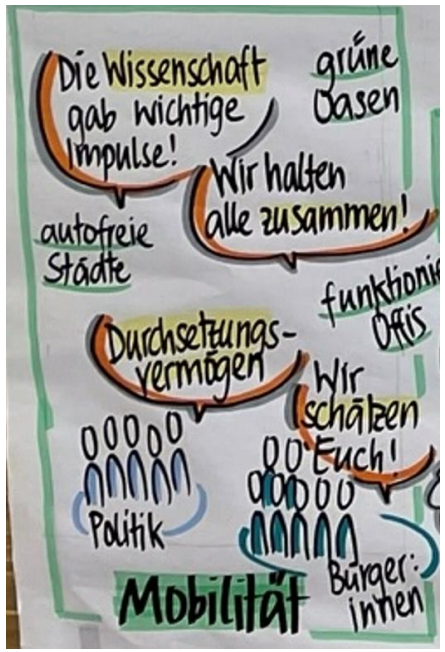 Die Wissenschaft
gab wichtige
Impulse!
grüne
Oasen
Wir halten
alle zusammen!
autofreie
Städte
Öffis
Durchsetzungs-
vermögen
Wir
schätzen
Euch!
Politik
Bürger:
innen
Mobilität